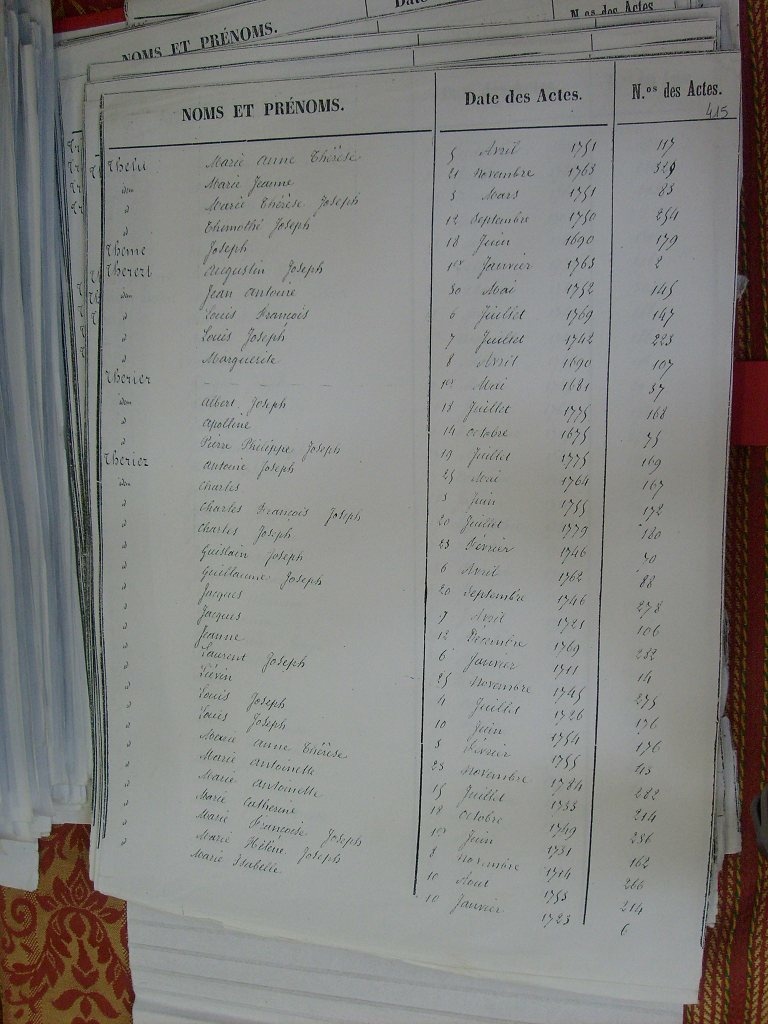 NOMS ET PRÉNOMS. Date des Actes. N.os des Actes.
415
Thelu Marie Anne Thérèse 5 Avril 1751 117
idem Marie Jeanne 21 Novembre 1763 329
d Marie Thérèse Joseph 3 Mars 1751 83
d Themothé Joseph 12 Septembre 1750 254
Theme Joseph 18 Juin 1690 179
Therert Augustin Joseph 1er Janvier 1763 2
idem Jean Antoine 30 Mai 1752 145
d Louis François 6 Juillet 1769 147
d Louis Joseph 7 Juillet 1742 223
d Marguerite 8 Avril 1690 107
Therier 1er Mai 1681 57
idem Albert Joseph 13 Juillet 1775 168
d Apolline 14 Octobre 1675 75
d Pierre Philippe Joseph 19 Juillet 1775 169
Therier Antoine Joseph 25 Mai 1764 167
idem Charles 3 Juin 1755 172
d Charles François Joseph 20 Juillet 1779 180
d Charles Joseph 23 Février 1746 70
d Guislain Joseph 6 Avril 1762 88
d Guillaume Joseph 20 Septembre 1746 278
d Jacques 9 Avril 1721 106
d Jacques 12 Décembre 1769 232
d Jeanne 6 Janvier 1711 14
d Laurent Joseph 25 Novembre 1745 275
d Liévin 4 Juillet 1726 176
d Louis Joseph 10 Juin 1754 176
d Louis Joseph 5 Février 1755 43
d Marie Anne Thérèse 23 Novembre 1784 282
d Marie Antoinette 15 Juillet 1733 214
d Marie Antoinette 18 Octobre 1749 236
d Marie Catherine 1er Juin 1731 162
d Marie Françoise Joseph 8 Novembre 1714 266
d Marie Hélène Joseph 10 Aout 1753 214
Marie Isabelle 10 Janvier 1723 6